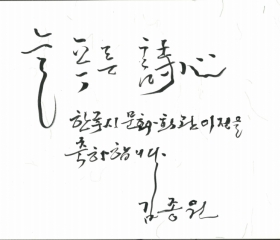 늘 푸른 詩心
한국시문화회관이전을
축하합니다.
김종원